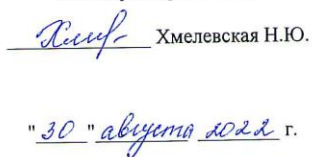 Хмелевская Н.Ю.
"30" августа 2022 г.